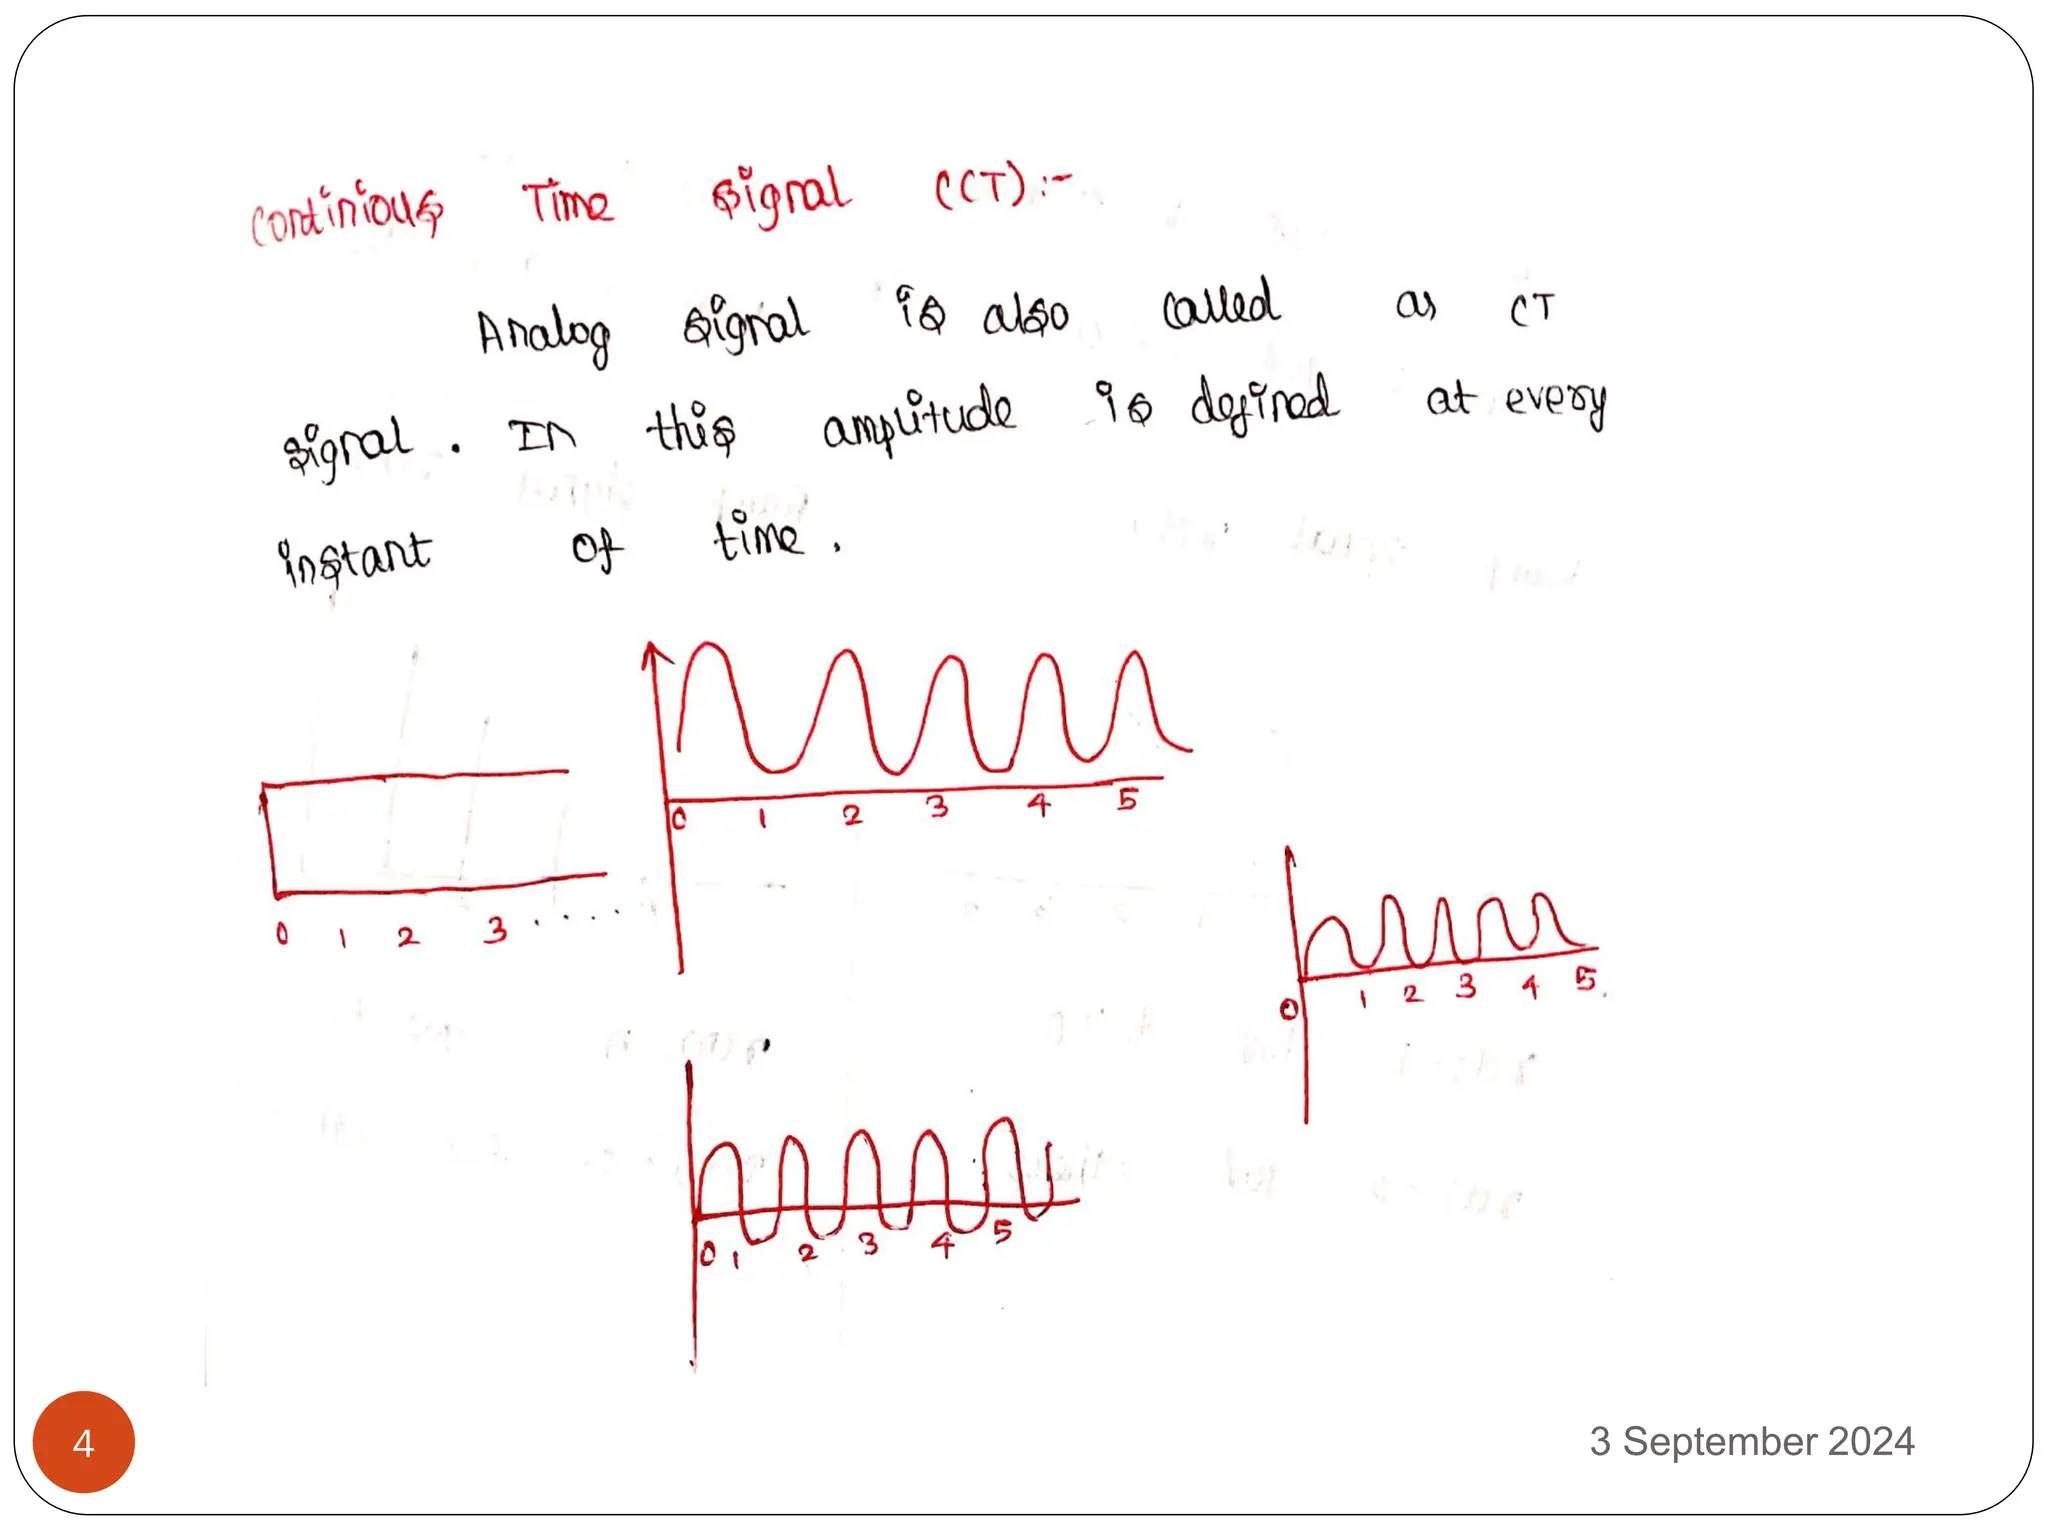 continious Time signal (CT):-
Analog signal is also called as CT
signal. In this amplitude is defined at every
instant of time.
0 1 2 3 5
0 1 2 3 4 5
0 1 2 3 4 5.
0 1 2 3 4 5
4
3 September 2024